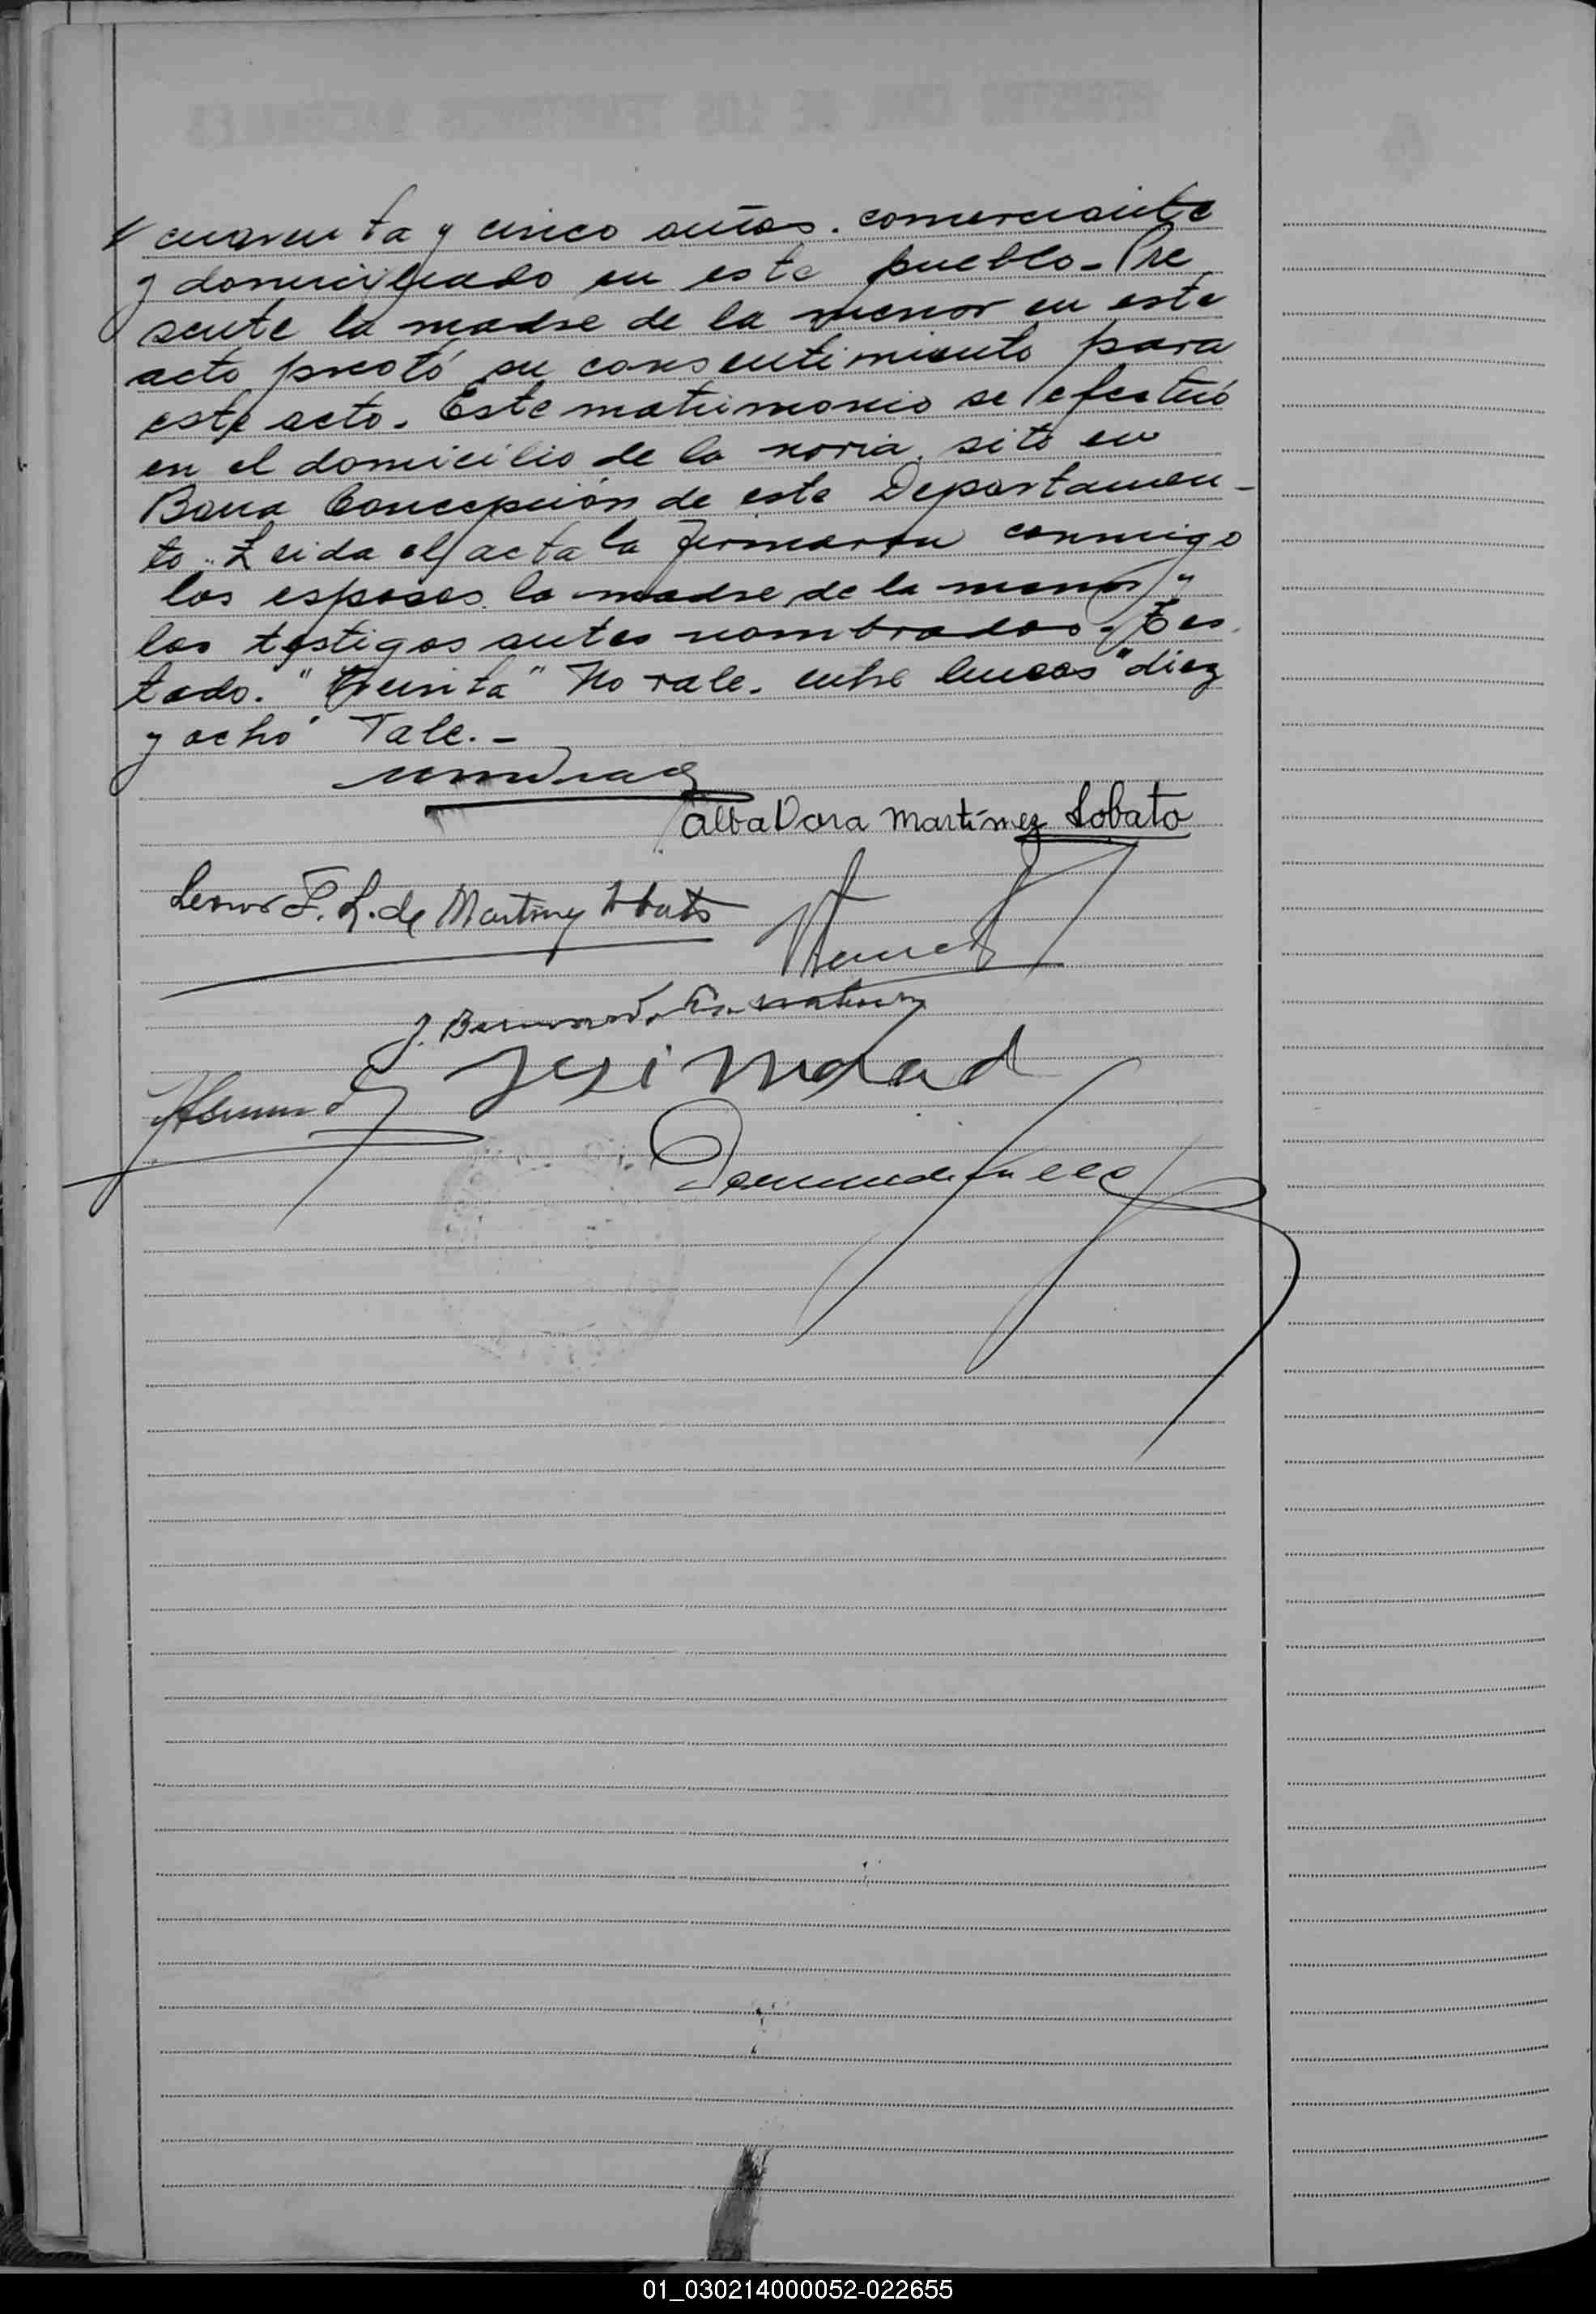 cuarenta y cinco años. comerciante
y domiciliado en este pueblo - Pre
sente la madre de la menor en este
acto prestó su consentimiento para
este acto. Este matrimonio se efectuó
en el domicilio de la novia. sito en
Barra Concepción de este Departamen-
to. Leida el acta la firmaron conmigo
los esposos. la madre de la menor y
los testigos antes nombrados. Tes
tado. "Treinta" No vale. entre lineas "diez
y ocho" Vale. -
Alba Dora Martínez Lobato
Leonor F. L. de Martinez Lobato
J. Bernardo
01_030214000052-022655